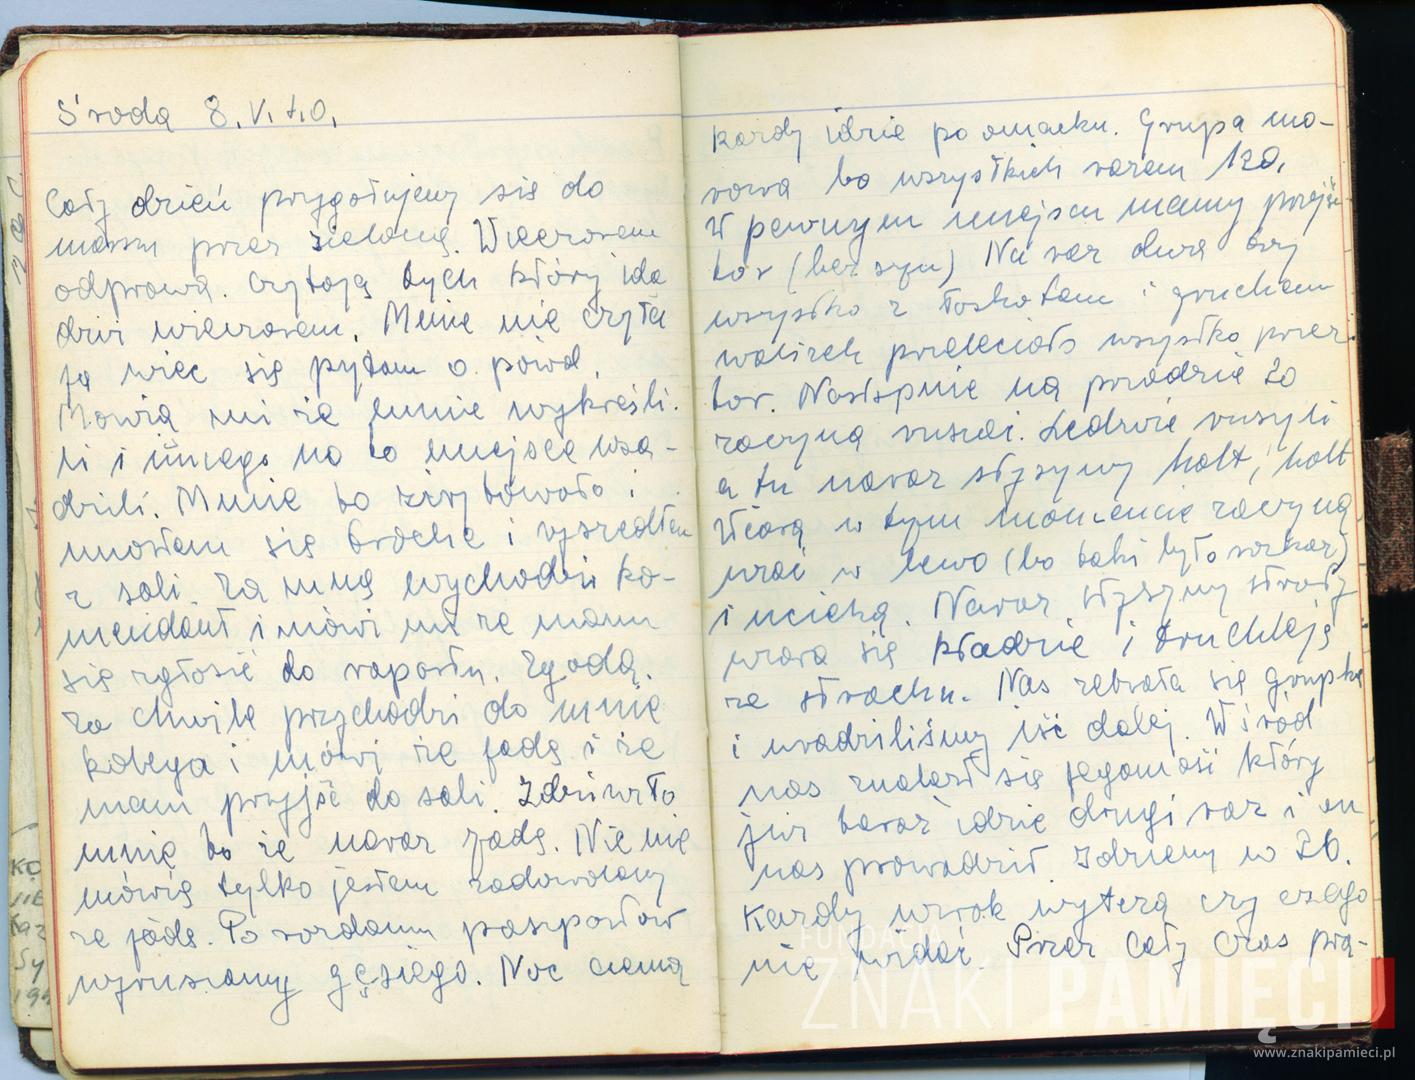 Środa 8. V. 40.
Cały dzień przygotujemy się do
marszu przez zieloną. Wieczorem
odprawa. Czytają tych który idą
dziś wieczorem. Mnie nie czyta
ją więc się pytam o powód.
Mówią mi że mnie wykreśli-
li i innego na to miejsce wsa-
dzili. Mnie to zirytowało i
uniosłem się trochę i wyszedłem
z sali. Za mną wychodzi ko-
mendant i mówi mi że mam
się zgłosić do raportu. Zgoda.
Za chwilę przychodzi do mnie
kolega i mówi że jadę i że
mam przyjść do sali. Zdziwiło
mnie to że naraz jadę. Nic nie
mówię tylko jestem zadowolony
że jadę. Po rozdaniu paszportów
wyruszamy gęsiego. Noc ciemna
każdy idzie po omacku. Grupa mo-
rowa bo wszystkich razem 120.
W pewnym miejscu mamy przejść
tor (bez szyn) Na raz dwa trzy
wszystko z łoskotem i gruchem
walizek przeleciało wszystko przez
tor. Następnie na przodzie 20
zaczyna ruszać. Ledwie ruszyli
a tu naraz słyszymy halt, halt
Wiara w tym momencie zaczyna
wiać w lewo (bo taki był rozkaz)
i ucieka. Naraz słyszymy strzały
wiara się kładzie i truchleją
ze strachu. Nas zebrała się grupka
i uradziliśmy iść dalej. Wśród
nas znalazł się jegomość który
już teraz idzie drugi raz i on
nas prowadził. Idziemy w 26.
Każdy wzrok wytęża czy czego
nie widać. Przez cały czas pra-
FUNDACJA
ZNAKI PAMIĘCI
www.znakipamieci.pl